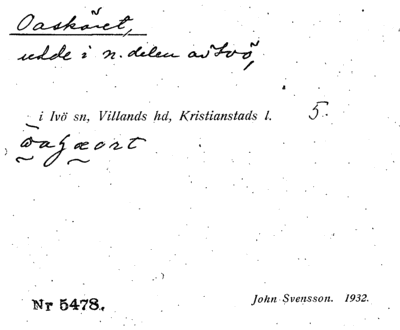 Oaskäret,
udde i n. delen av Ivö,
i Ivö sn, Villands hd, Kristianstads l. 5.
Nr 5478.
John Svensson. 1932.